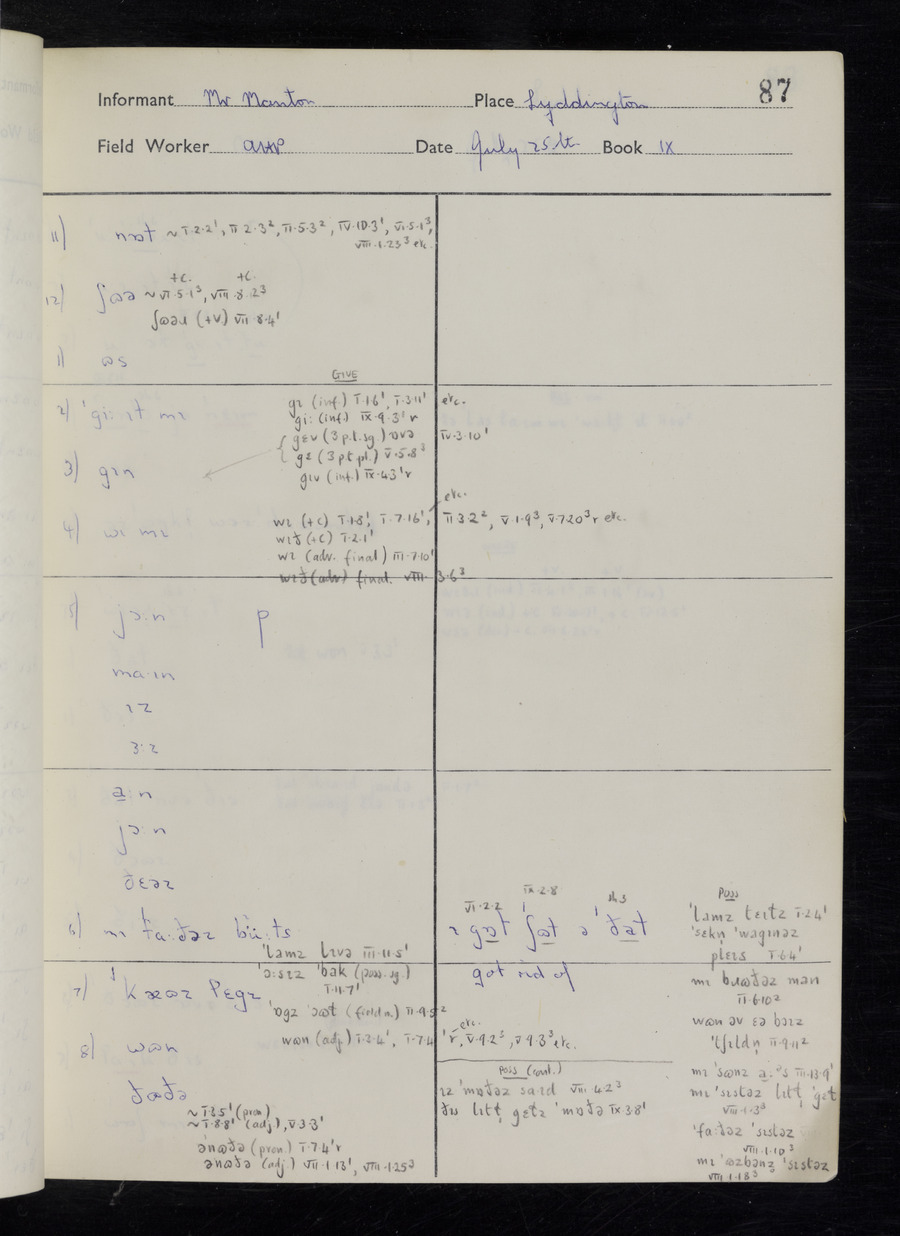 87
Informant Mr Manton Place Lyddington
Field Worker Date July 25th Book IX
11) nɒt ~ I·2·2¹, II·2·3², II·5·3², IV·10·3¹, VI·5·1³,
VIII·1·23³ etc.
+C. +C.
12) ʃɷə ~ VI·5·1³, VIII·8·2³
ʃɷəɹ (+V) VII·8·4¹
1) ɷs
GIVE
2) ˈgiːɪt mɪ
gɪ (inf.) I·1·6¹, I·3·11¹ etc.
gi: (inf.) IX·9·3¹ r
gɛv (3 p.t. sg.) ɒvə IV·3·10¹
3) gɪn
gɛ (3 p.t. pl.) V·5·8³
gɪv (inf.) IX·4·3¹ r
etc.
4) wi mɪ
wɪ (+C) I·1·8¹, I·7·16¹, II·3·2², V·1·9³, V·7·20³ r etc.
wɪð (+C) I·2·1¹
wɪ (adv. final) III·7·10¹
wɪð (adv) final. VIII·3·6³
5) jɔːn p
maːɪn
ɪz
ɜːz
a:n
jɔːn
ðɛəz
6) mɪ ˈfaːðəz büːts
VI·2·2 IX·2·8
ɪ gɒt ʃɷt ə ˈðat
ˈlamz lɪvə III·11·5¹
7) ˈkæɷz pɛgz got rid of
ˈɔːsɪz ˈbak (poss. sg.)
I·11·7¹
8) wɷn
wɷn (adj) I·2·4¹, I·7·4¹ r, V·9·2³, V·9·3³ etc.
ðɷðə
~ I·3·5¹ (pron)
~ I·8·8¹ (adj), V·3·3¹
ənɷðə (pron) I·7·4¹ r
ənɷðə (adj) VII·1·13¹, VIII·1·25³
Poss (cont.)
ɪz ˈmɷðəz saɪd VIII·4·2³
ðɪs lɪtl̩ gɛtz ˈmɷðə IX·3·8¹
Poss
ˈlamz teɪlz I·2·4¹
ˈsɛkn̩ ˈwaginəz
pleɪs I·6·4¹
mɪ bɹɷðəz man
II·6·10²
wɷn əv ɛə bɔɪz
ˈtʃɪldn̩ II·9·11²
mɪ ˈsɷnz III·13·9¹
mɪ ˈsɪstəz lɪtl̩ ˈgɛt
VIII·1·3³
ˈfaːðəz ˈsɪstəz
VIII·1·10³
mɪ ˈɷzbənz ˈsɪstəz
VIII·1·18³